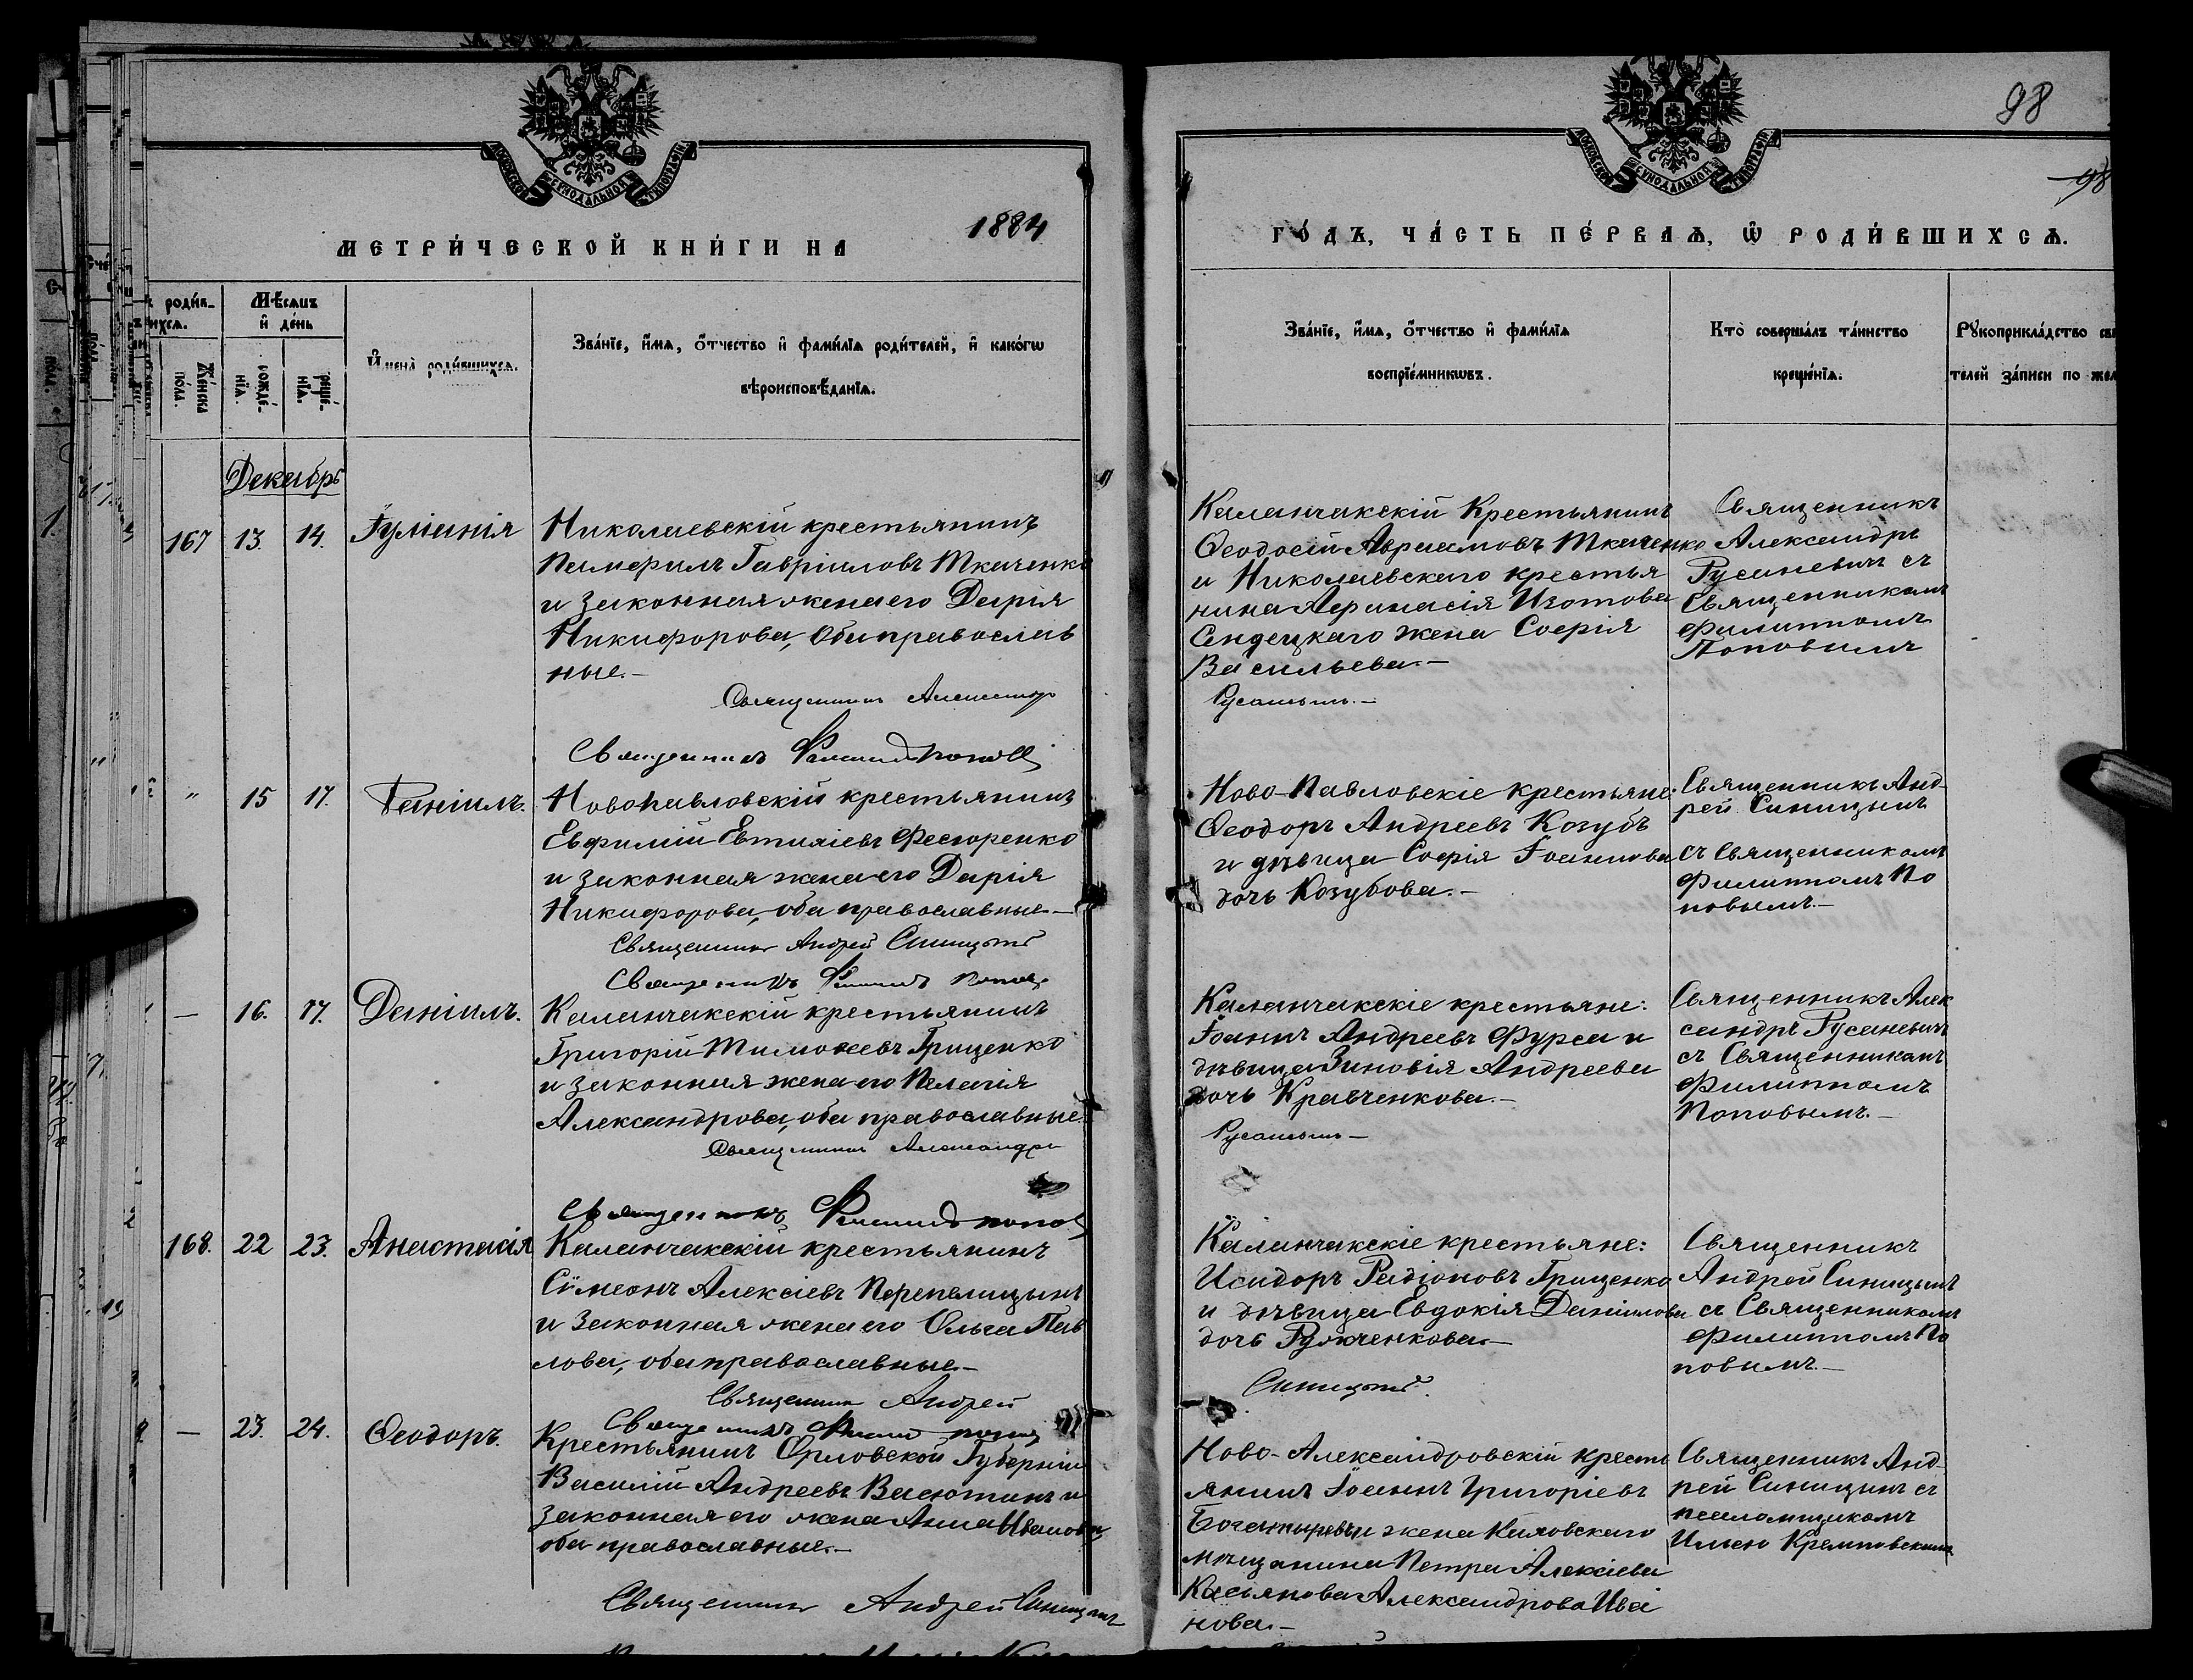 98
98
МОСКОВСКОЙ СѴНОДАЛЬНОЙ ТИПОГРАФІИ
МОСКОВСКОЙ СѴНОДАЛЬНОЙ ТИПОГРАФІИ
МЕТРИ́ЧЕСКОЙ КНИ́ГИ НА 1884
ГО́ДЪ, ЧА́СТЬ ПЕ́РВАѦ, Ѿ РОДИ́ВШИХСѦ.
роди́в-
ихсѧ.
Же́нска по́ла.
Мѣ́сѧцъ и҆ де́нь
рожде́-нїѧ.
креще́-нїѧ.
И҆мена̀ роди́вшихсѧ.
Зва́нїе, и҆́мѧ, ѻ҆́тчество и҆ фами́лїѧ роди́телей, и҆ како́гѡ
вѣроисповѣ́данїѧ.
Зва́нїе, и҆́мѧ, ѻ҆́тчество и҆ фами́лїѧ
воспрїе́мникѡвъ.
Кто̀ соверша́лъ та́инство
креще́нїѧ.
Рꙋкоприкла́дство сви
телей за́писи по жел
Декабрь
167 13. 14. Іуліанія
Николаевскій крестьянинъ
Памфилъ Гавріиловъ Ткаченко
и законная жена его Дарія
Никифорова, оба православ
ные.-
Священникъ Александръ
Священникъ Филиппъ Поповъ
Каланчакскій Крестьянинъ
Ѳеодосій Авраамовъ Ткаченко
и Николаевскаго крестья
нина Афанасія Изотова
Сендецкаго жена Софія
Васильева.-
Русаневичъ.-
Священникъ
Александръ
Русаневичъ съ
Священникомъ
Филиппомъ
Поповымъ
" 15 17. Даніилъ.
Новопавловскій крестьянинъ
Евфимій Евтихіевъ Фесюренко
и законная жена его Дарія
Никифорова, оба православные.-
Священникъ Андрей Синицынъ
Священникъ Филиппъ Поповъ
Ново-Павловскіе крестьяне:
Ѳеодоръ Андреевъ Козубъ
и дѣвица Софія Іоаннова
дочь Козубова.-
Священникъ Анд-
рей Синицынъ
съ Священникомъ
Филиппомъ По
повымъ.-
— 16. 17. Даніилъ.
Каланчакскій крестьянинъ
Григорій Тимоѳеевъ Грищенко
и законная жена его Пелагія
Александрова, оба православные.
Священникъ Александръ
Священникъ Филиппъ Поповъ
Каланчакскіе крестьяне:
Іоаннъ Андреевъ Фурса и
дѣвица Зиновія Андреева
дочь Кравченкова.-
Русаневичъ-
Священникъ Алек
сандръ Русаневичъ
съ Священникомъ
Филиппомъ
Поповымъ.-
168. 22 23. Анастасія
Каланчакскій крестьянинъ
Сѵмеонъ Алексіевъ Перепелицынъ
и законная жена его Ольга Пав
лова, оба православные.-
Священникъ Андрей
Священникъ Филиппъ Поповъ
Каланчакскіе крестьяне:
Исидоръ Радіоновъ Грищенко
и дѣвица Евдокія Даніилова
дочь Ружченкова.-
Синицынъ.
Священникъ
Андрей Синицынъ
съ Священникомъ
Филиппомъ По
повымъ.-
— 23. 24. Ѳеодоръ.
Крестьянинъ Орловской Губерніи
Василій Андреевъ Васютинъ и
законная его жена Анна Иванова
оба православные.-
Священникъ Андрей Синицынъ
Ново-Александровскій кресть
янинъ Іоаннъ Григоріевъ
Богатыревъ и жена
мѣщанина Петра Алексіева
Касьянова Александрова Ива
нова.-
Священникъ Анд-
рей Синицынъ съ
псаломщикомъ
Ильею Кремповскимъ